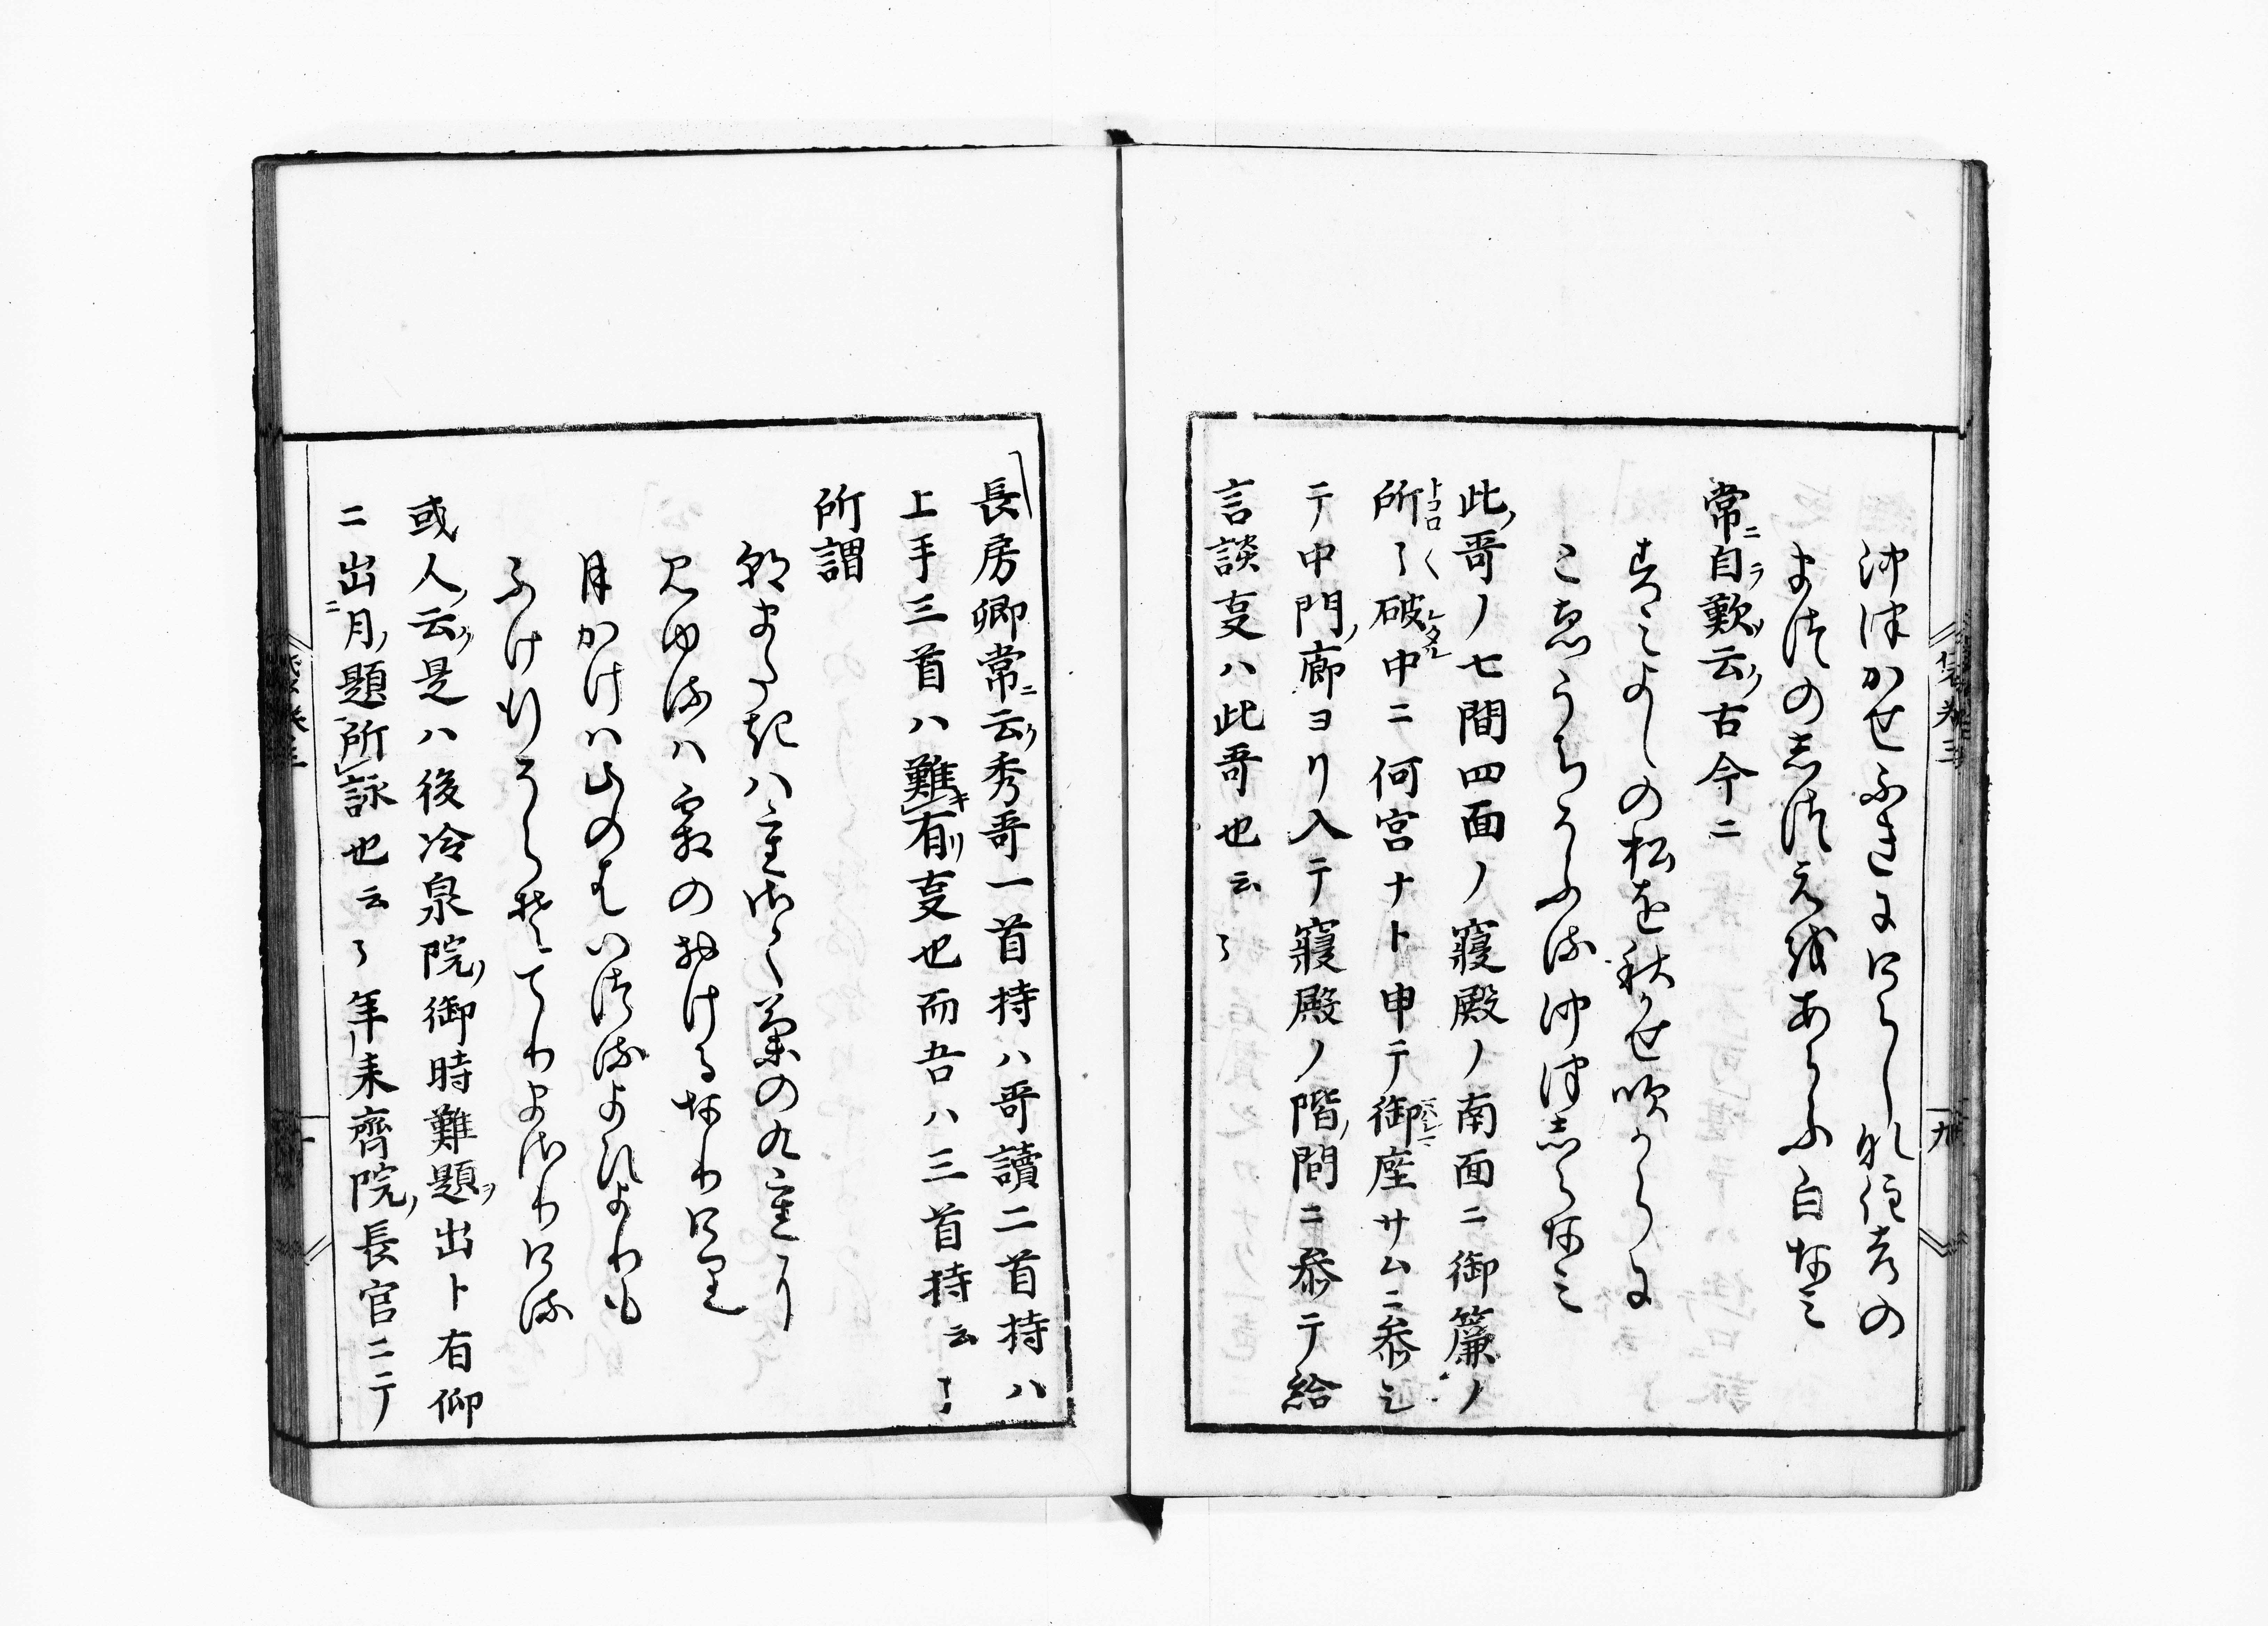 沖津かせふきにけらしな住吉の
まつのしつえをあらふ白なみ
常ニ自ラ歎云ク古今ニ
すみよしの松を秋かせ吹からに
こゑうちそふる沖津しらなみ
此ノ哥ノ七間四面ノ寝殿ノ南面ニ御簾ノ
所〻破中ニ何宮ナト申テ御座サムニ参シ
テ中門ノ廊ヨリ入テ寝殿ノ階ノ間ニ参テ給
言談叓ハ此哥也云〻
長房卿常ニ云ク秀哥一首持ハ哥讀二首持ハ
上手三首ハ難キ有リ叓也而吾ハ三首持云〻
所謂
朝またきハ重さく菊の九重に
見ゆるハ霜のおけるなりけり
月かけハ山のはいつるよひよりも
ふけ行そらそてりまさりける
或人ノ云ク是ハ後冷泉院ノ御時難題ヲ出ト有仰
ニ出月ノ題所詠也云〻年来齊院ノ長官ニテ
十九